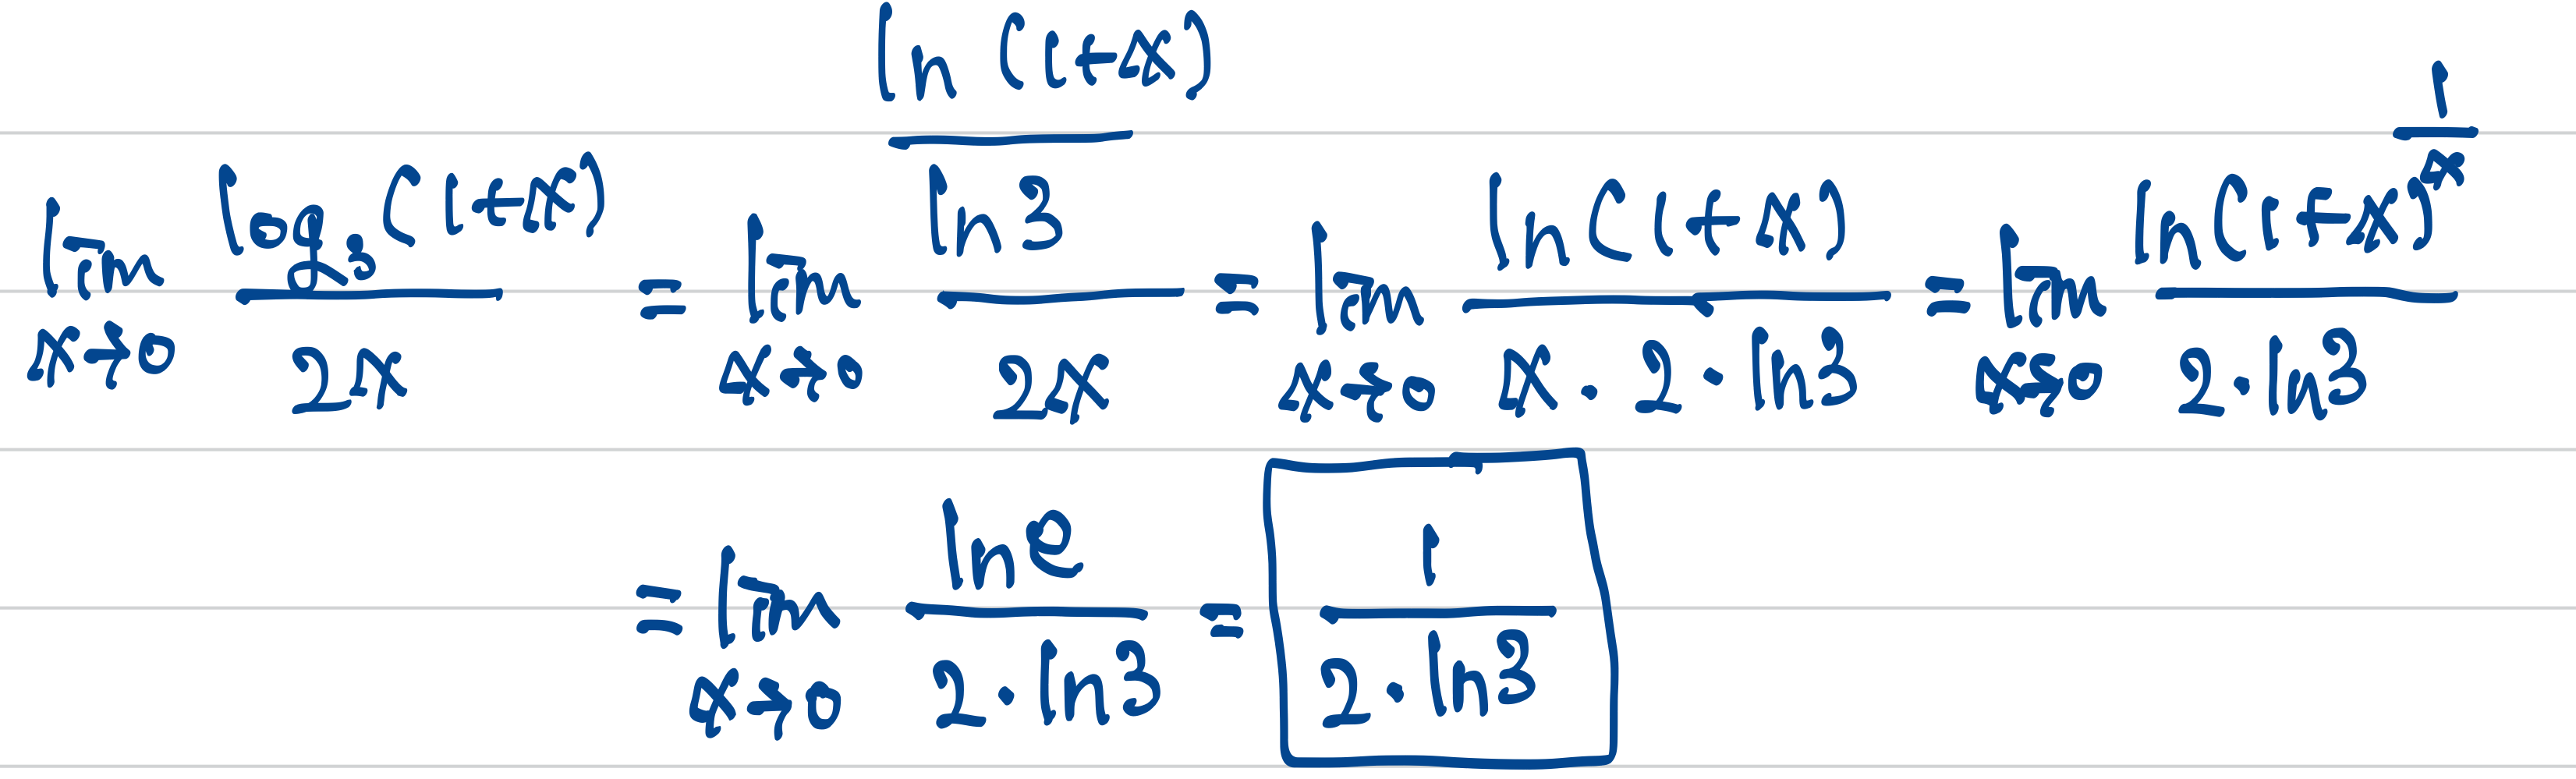 lim x→0 log₃(1+x) / 2x = lim x→0 (ln(1+x) / ln3) / 2x = lim x→0 ln(1+x) / x·2·ln3 = lim x→0 ln(1+x)^(1/x) / 2·ln3
= lim x→0 ln e / 2·ln3 = 1 / 2·ln3